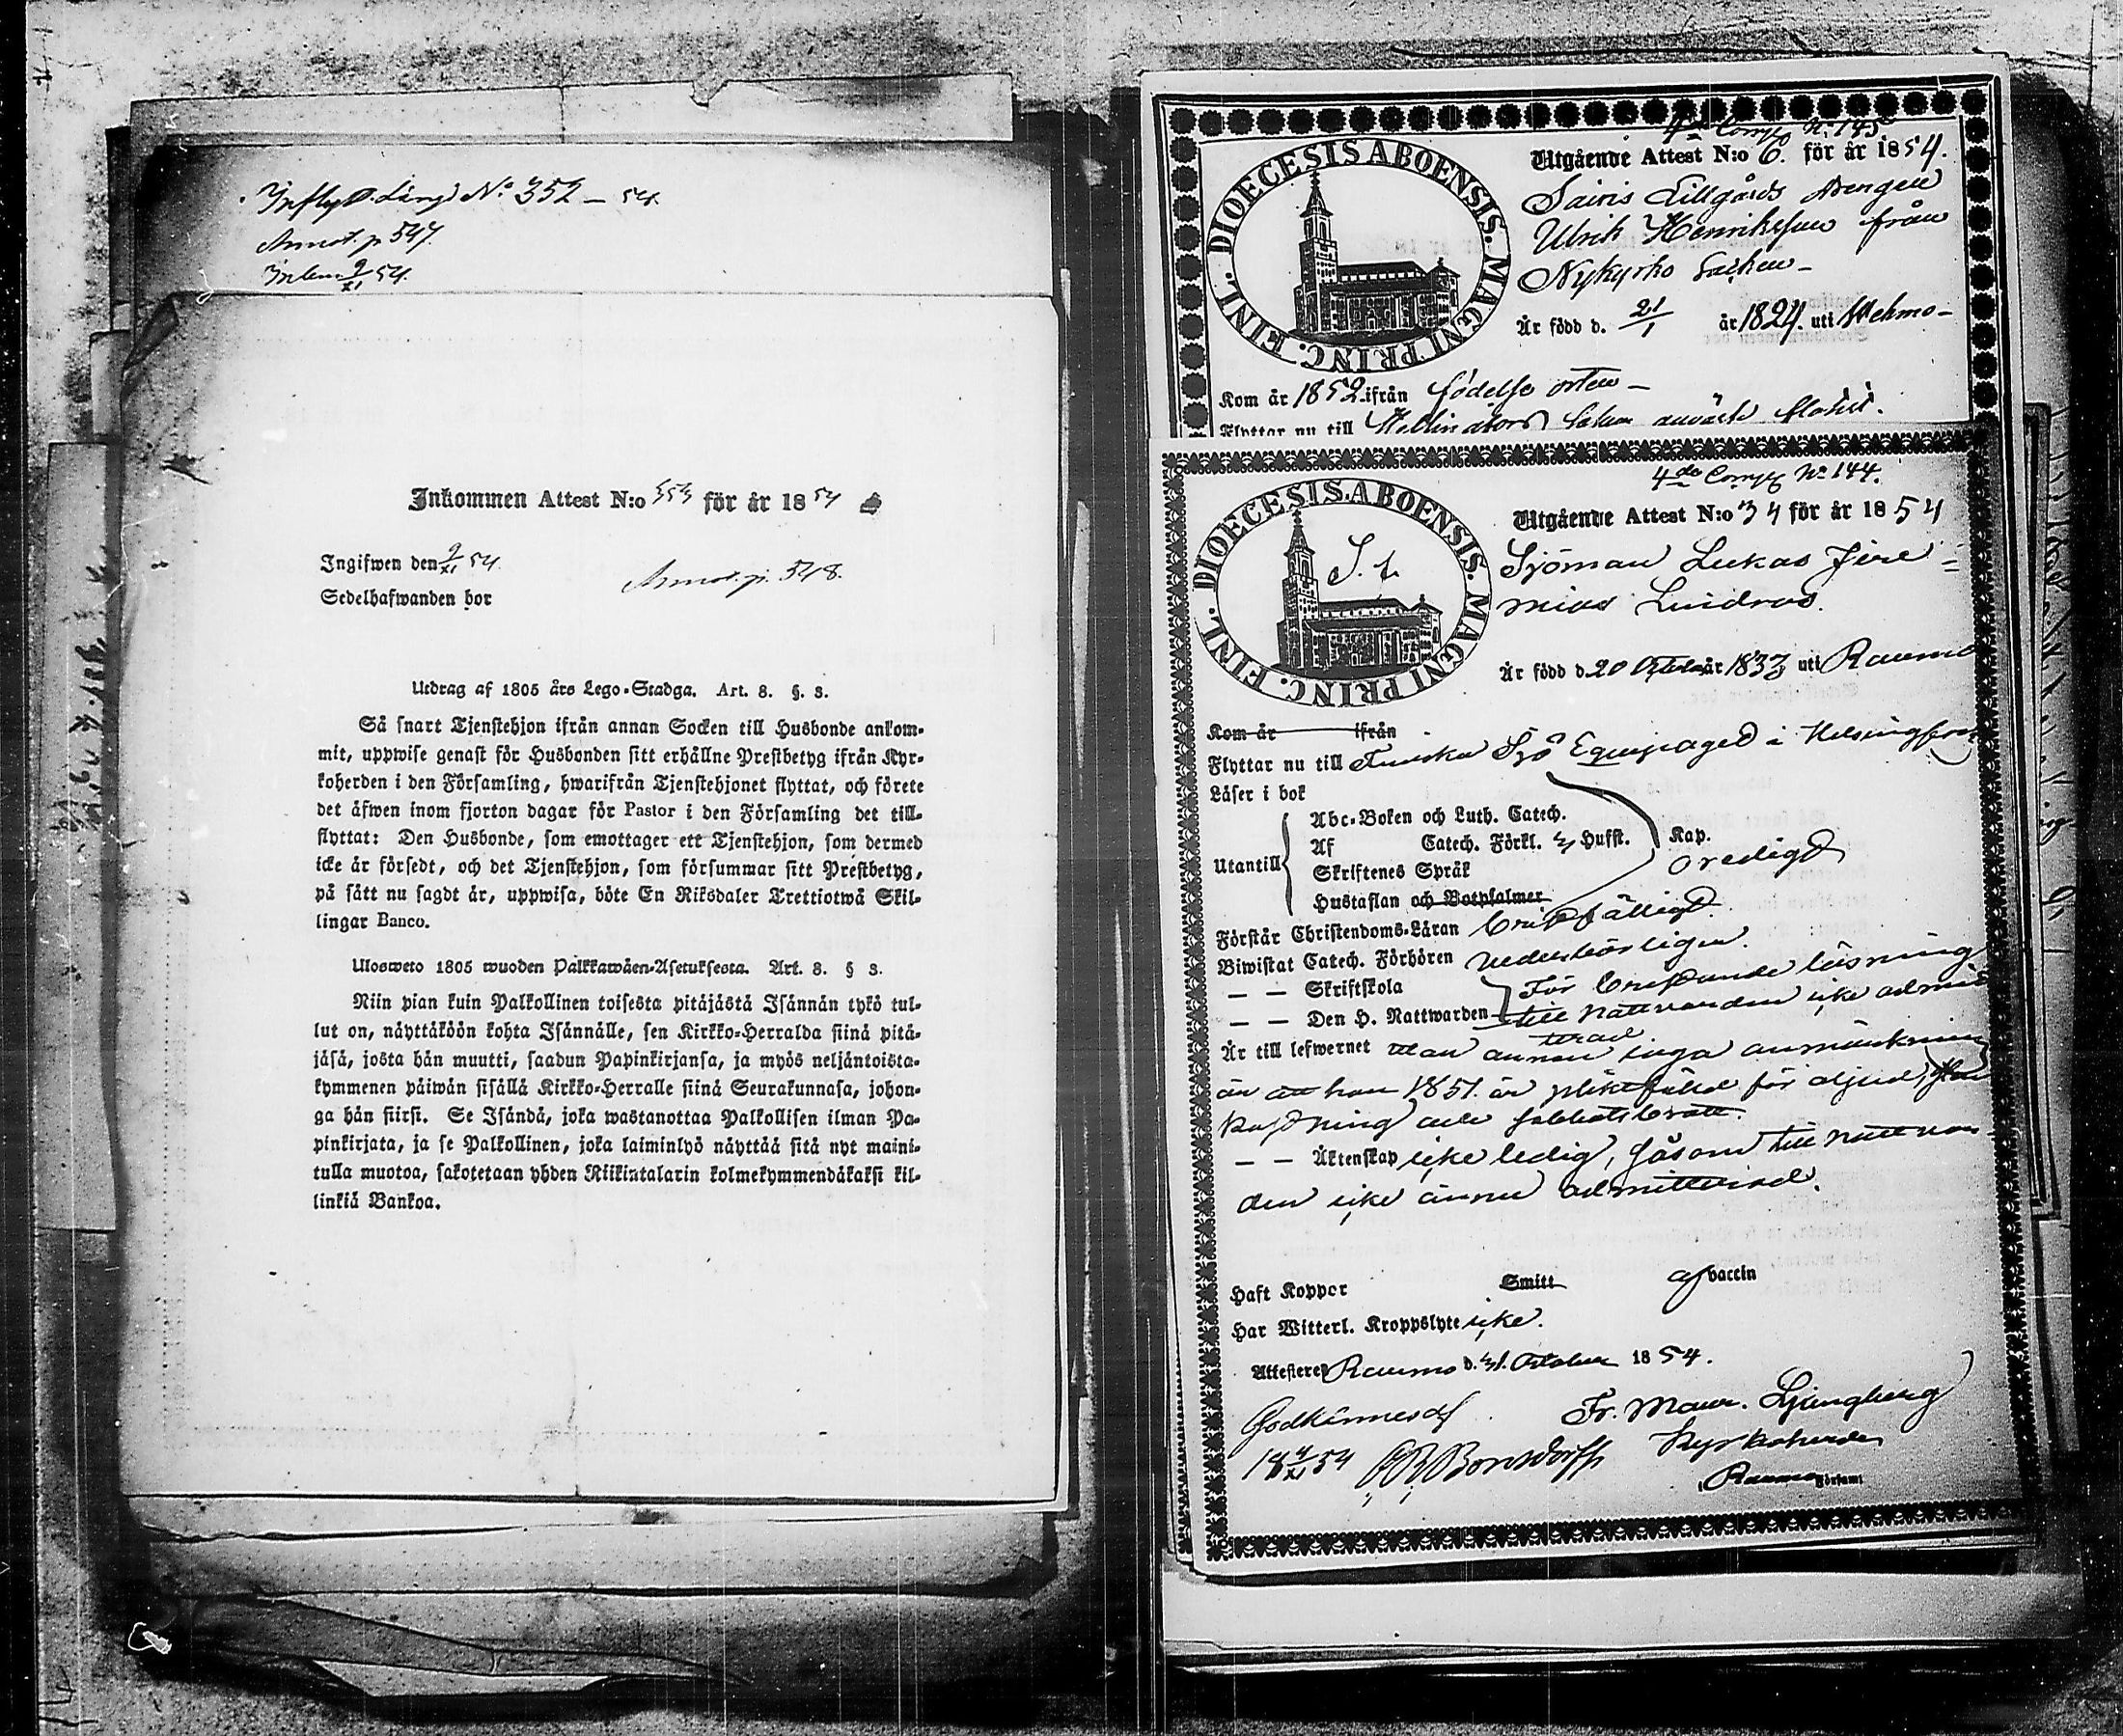 Inflyttn. Längd No 352 – 54.
Annot. p 547.
Inlem. 9/XI 54.
Inkommen Attest N:o 353 för år 1854
Ingifwen den 9/XI 54.
Annot. p. 548.
Sedelhafwanden bor
Utdrag af 1805 års Lego-Stadga. Art. 8. §. 3.
Så snart Tjenstehjon ifrån annan Socken till Husbonde ankom-
mit, uppwise genast för Husbonden sitt erhållne Prestbetyg ifrån Kyr-
koherden i den Församling, hwarifrån Tjenstehjonet flyttat, och förete
det äfwen inom fjorton dagar för Pastor i den Församling det till-
flyttat: Den Husbonde, som emottager ett Tjenstehjon, som dermed
icke är försedt, och det Tjenstehjon, som försummar sitt Prestbetyg,
på sätt nu sagdt är, uppwisa, böte En Riksdaler Trettiotwå Skil-
lingar Banco.
Ulosweto 1805 wuoden Palkkawäen-Asetuksesta. Art. 8. § 3.
Niin pian kuin Palkollinen toisesta pitäjästä Isännän tykö tul-
lut on, näyttäköön kohta Isännälle, sen Kirkko-Herralda siinä pitä-
jäsä, josta hän muutti, saadun Papinkirjansa, ja myös neljäntoista-
kymmenen päiwän sisällä Kirkko-Herralle siinä Seurakunnasa, johon-
ga hän siirsi. Se Isändä, joka wastanottaa Palkollisen ilman Pa-
pinkirjata, ja se Palkollinen, joka laiminlyö näyttää sitä nyt maini-
tulla muotoa, sakotetaan yhden Riikintalarin kolmekymmendäkaksi kil-
linkiä Bankoa.
4de Comp. No 145
DIOECESIS ABOENSIS. MAGNI PRINC. FINL.
Utgående Attest N:o 6. för år 1854.
Sairis Lillgårds drengen
Ulrik Henriksson från
Nykyrko Socken –
Är född d. 21/1 år 1824. uti Wehmo –
Kom år 1852 ifrån födelse orten –
Flyttar nu till
4de Comp No 144.
DIOECESIS ABOENSIS. MAGNI PRINC. FINL.
S. f.
Utgående Attest N:o 34 för år 1854
Sjöman Lukas Jere=
mias Lindroos.
Är född d 20 October år 1833 uti Raumo
Kom år ifrån
Flyttar nu till Finska Sjö Equipaged i Helsingfors
Läser i bok
Utantill
Abc-Boken och Luth. Catech.
Af Catech. Förkl. 3 Hufst. Kap.
oredigt
Skriftenes Språk
Hustaflan och Botpsalmer
Förstår Christendoms-Läran bristfälligt.
Biwistat Catech. Förhören vederbörligen.
— — Skriftskola
För bristande läsning
— — Den H. Nattwarden till nattvarden icke admit
terad
Är till lefwernet utan annan inga anmärkning
än att han 1851. är pliktfälld för oljud, sten
kastning och sabbatsbrott.
— — Äktenskap icke ledig, såsom till nattvar
den icke ännu admitterad.
Haft Koppor Smitt af vaccin
Har Witterl. Kroppslyte icke.
Attesteres Raumo d. 31. October 1854.
Godkännes af
Fr. Maur. Ljungberg
18 4/XI 54 Bonsdorff
Kyrkoherde
Raumo Församl